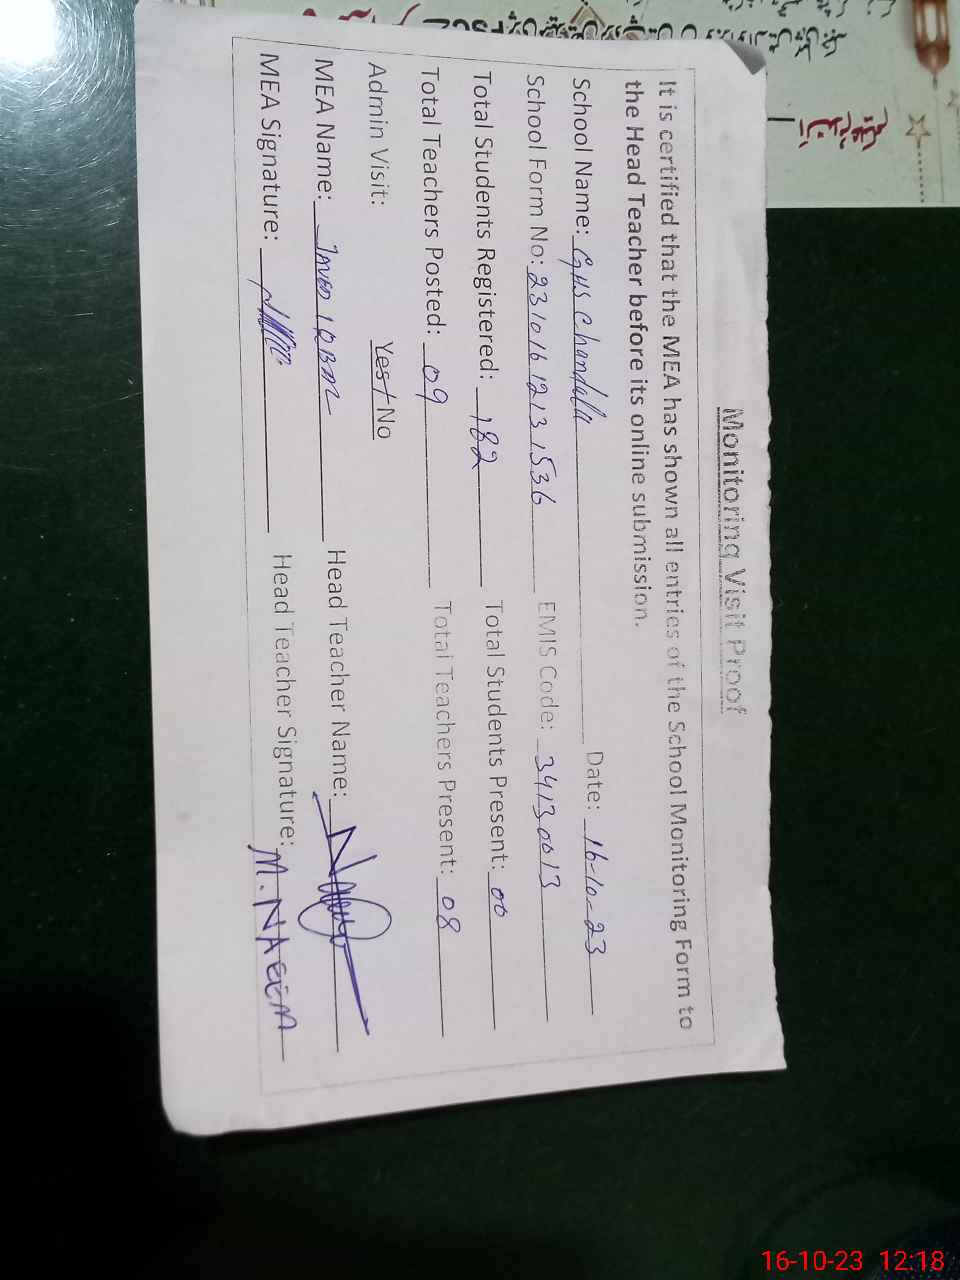 Monitoring Visit Proof
It is certified that the MEA has shown all entries of the School Monitoring Form to
the Head Teacher before its online submission.
School Name: GHS Chandalla Date: 16-10-23
School Form No: 231016 1213 1536 EMIS Code: 34130013
Total Students Registered: 182 Total Students Present: 00
Total Teachers Posted: 09 Total Teachers Present: 08
Admin Visit: Yes / No
MEA Name: JAVED IQBAL Head Teacher Name:
MEA Signature: Head Teacher Signature: M. NAEEM
16-10-23 12:18